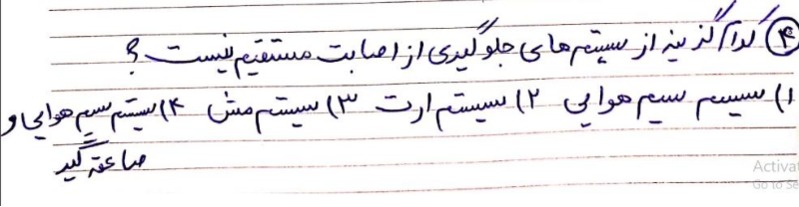 ۴) کدام گزینه از سیستم های جلوگیری از اصابت مستقیم نیست؟
۱) سیسیم سیم هوایی ۲) سیستم ارت ۳) سیستم مش ۴) سیستم سیم هوایی و
صاعقه گیر
Activat
Go to Se